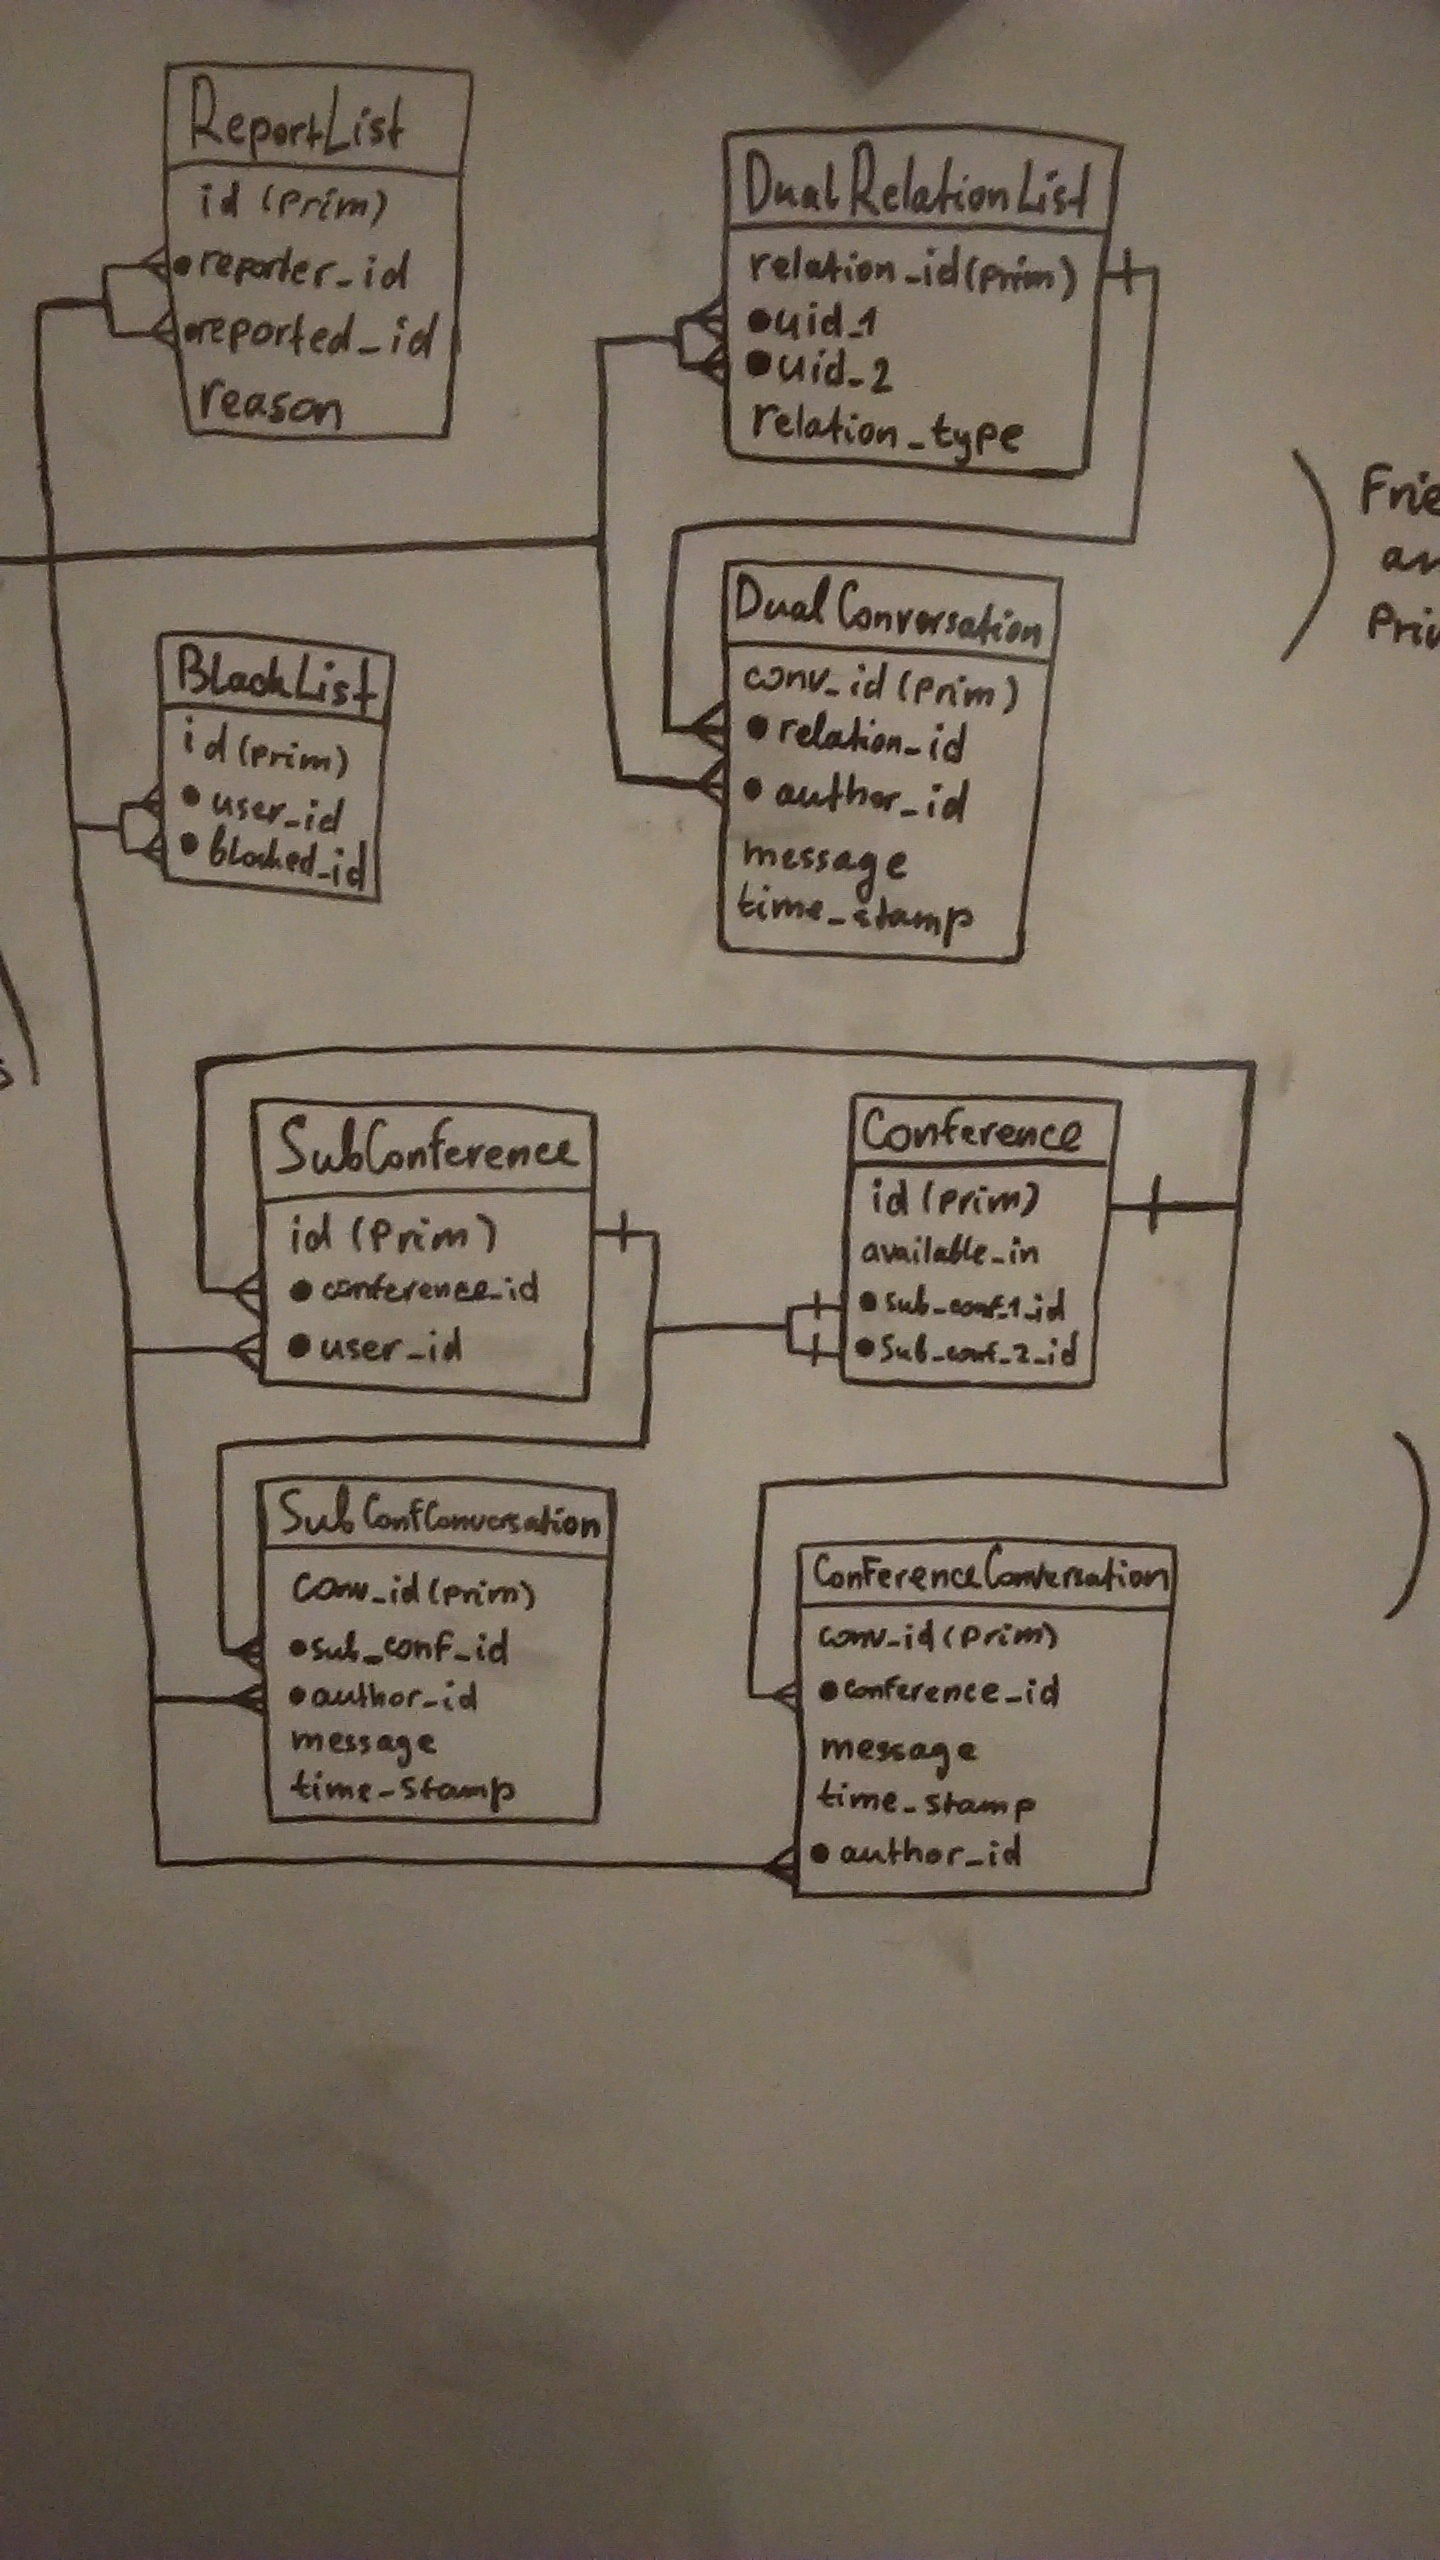 ReportList
id (prim)
•reporter_id
•reported_id
reason
DualRelationList
relation_id(prim)
•uid_1
•uid_2
relation_type
Frie
an
Priv
DualConversation
conv_id (prim)
•relation_id
•author_id
message
time_stamp
BlackList
id (prim)
•user_id
•blocked_id
s
SubConference
id (Prim)
•conference_id
•user_id
Conference
id (prim)
available_in
•sub_conf_1_id
•sub_conf_2_id
SubConfConversation
conv_id (prim)
•sub_conf_id
•author_id
message
time_stamp
ConferenceConversation
conv_id (prim)
•conference_id
message
time_stamp
•author_id